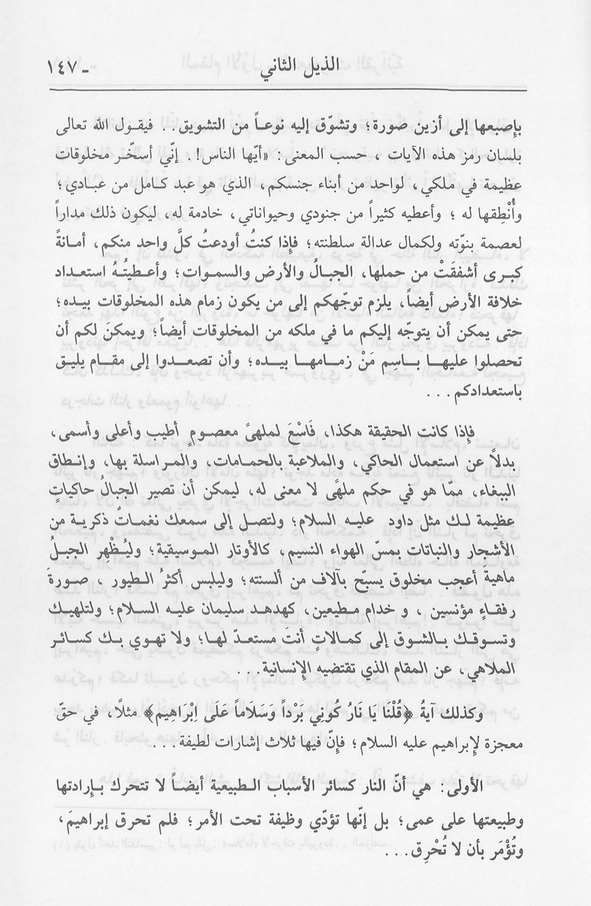 الذيل الثاني
ـ ١٤٧
بإصبعها إلى أزين صورة؛ وتشوّق إليه نوعاً من التشويق.. فيقول الله تعالى
بلسان رمز هذه الآيات ، حسب المعنى: «أيّها الناس!. إنّي أسخّر مخلوقات
عظيمة في ملكي، لواحد من أبناء جنسكم، الذي هو عبد كامل من عبادي؛
وأُنْطِقها له ؛ وأعطيه كثيراً من جنودي وحيواناتي، خادمة له، ليكون ذلك مداراً
لعصمة بنوّته ولكمال عدالة سلطنته؛ فإذا كنتُ أودعتُ كلَّ واحد منكم، أمـانةً
كبـرى أشفقتْ من حملها، الجبـالُ والأرض والسمـوات؛ وأعـطيتُـهُ استعـداد
خلافة الأرض أيضاً، يلزم توجّهكم إلى من يكون زمام هذه المخلوقات بيـده؛
حتى يمكن أن يتوجّه إليكم ما في ملكه من المخلوقات أيضاً؛ ويمكن لكم أن
تحصلوا عليهـا بـاسم مَنْ زمـامهـا بيـده؛ وأن تصعـدوا إلى مقـام يليق
باستعدادكم...
فإذا كانت الحقيقة هكذا، فَاسْعَ لملهىً معصـوم أطيب وأعلى وأسمى،
بدلاً عن استعمال الحاكي، والملاعبة بالحمـامات، والمـراسلة بها، وإنـطاق
الببغاء، ممّا هو في حكم ملهًى لا معنى له، ليمكن أن تصير الجبـالُ حاكيـاتٍ
عظيمة لـك مثل داود عليـه السلام؛ ولتصـل إلى سمعك نغمـاتٌ ذكريـة من
الأشجار والنباتات بمسّ الهواء النسيم، كالأوتار الموسيقية؛ وليُـظْهِر الجبـلُ
ماهيةَ أعجب مخلوق يسبح بآلاف من ألسنته؛ وليلبس أكثرُ الـطيور ، صـورةَ
رفقـاءٍ مؤنسين ، و خدام مـطيعين، كهدهـد سليمان عليـه السلام؛ ولتلهيـك
وتسـوقـك بـالشوق إلى كمـالاتٍ أنتَ مستعـدّ لهـا؛ ولا تهوي بـك كسـائر
الملاهي، عن المقام الذي تقتضيه الإنسانية...
وكذلك آيةُ ﴿قُلْنَا يَا نَارُ كُونِي بَرْداً وَسَلَاماً عَلَى إبْرَاهِيم﴾ مثلًا، في حقّ
معجزة لإبراهيم عليه السلام؛ فإنّ فيها ثلاث إشارات لطيفة...
الأولى: هي أنّ النار كسائر الأسباب الـطبيعية أيضـاً لا تتحرك بـإرادتها
وطبيعتها على عمى؛ بل إنّها تؤدّي وظيفة تحت الأمر؛ فلم تحرق إبراهيمَ،
وتُؤْمَر بأن لا تُحْرِق...